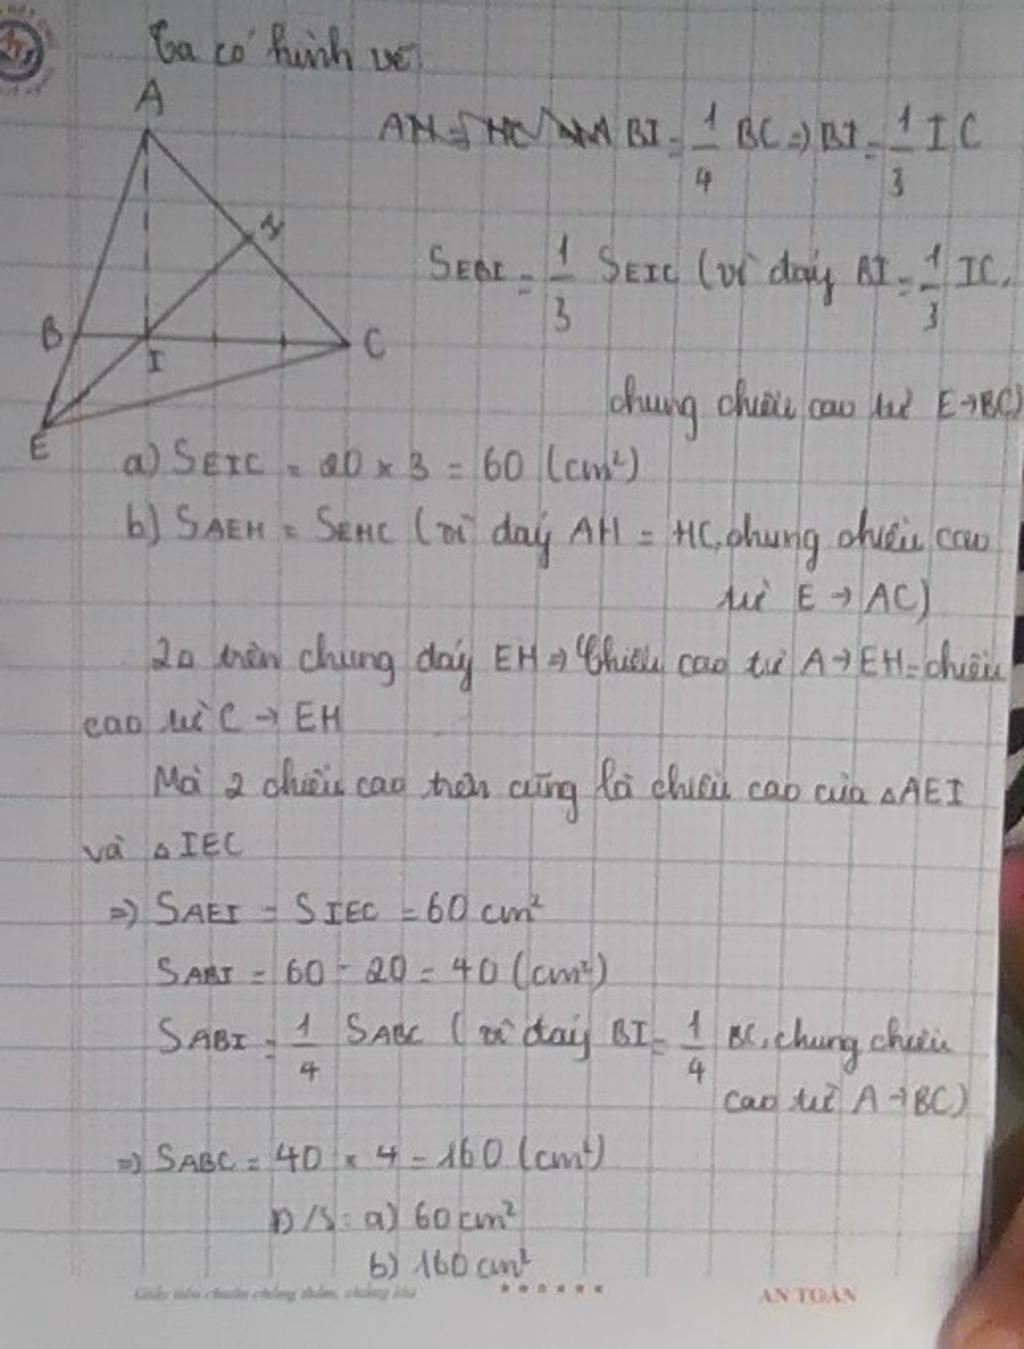 Ta có hình vẽ
A
BI = 1/4 BC => BI = 1/3 IC
H
SEBI = 1/3 SEIC (vì đáy BI = 1/3 IC,
B
I
C
chung chiều cao từ E→BC)
E
a) SEIC = 20 x 3 = 60 (cm²)
b) SAEH = SEHC (vì đáy AH = HC, chung chiều cao
từ E → AC)
2Δ trên chung đáy EH => Chiều cao từ A→EH = chiều
cao từ C → EH
Mà 2 chiều cao trên cũng là chiều cao của ΔAEI
và ΔIEC
=> SAEI = SIEC = 60 cm²
SABI = 60 - 20 = 40 (cm²)
SABI = 1/4 SABC (vì đáy BI = 1/4 BC, chung chiều
cao từ A→BC)
=> SABC = 40 x 4 = 160 (cm²)
Đ/S: a) 60 cm²
b) 160 cm²
AN TOÀN